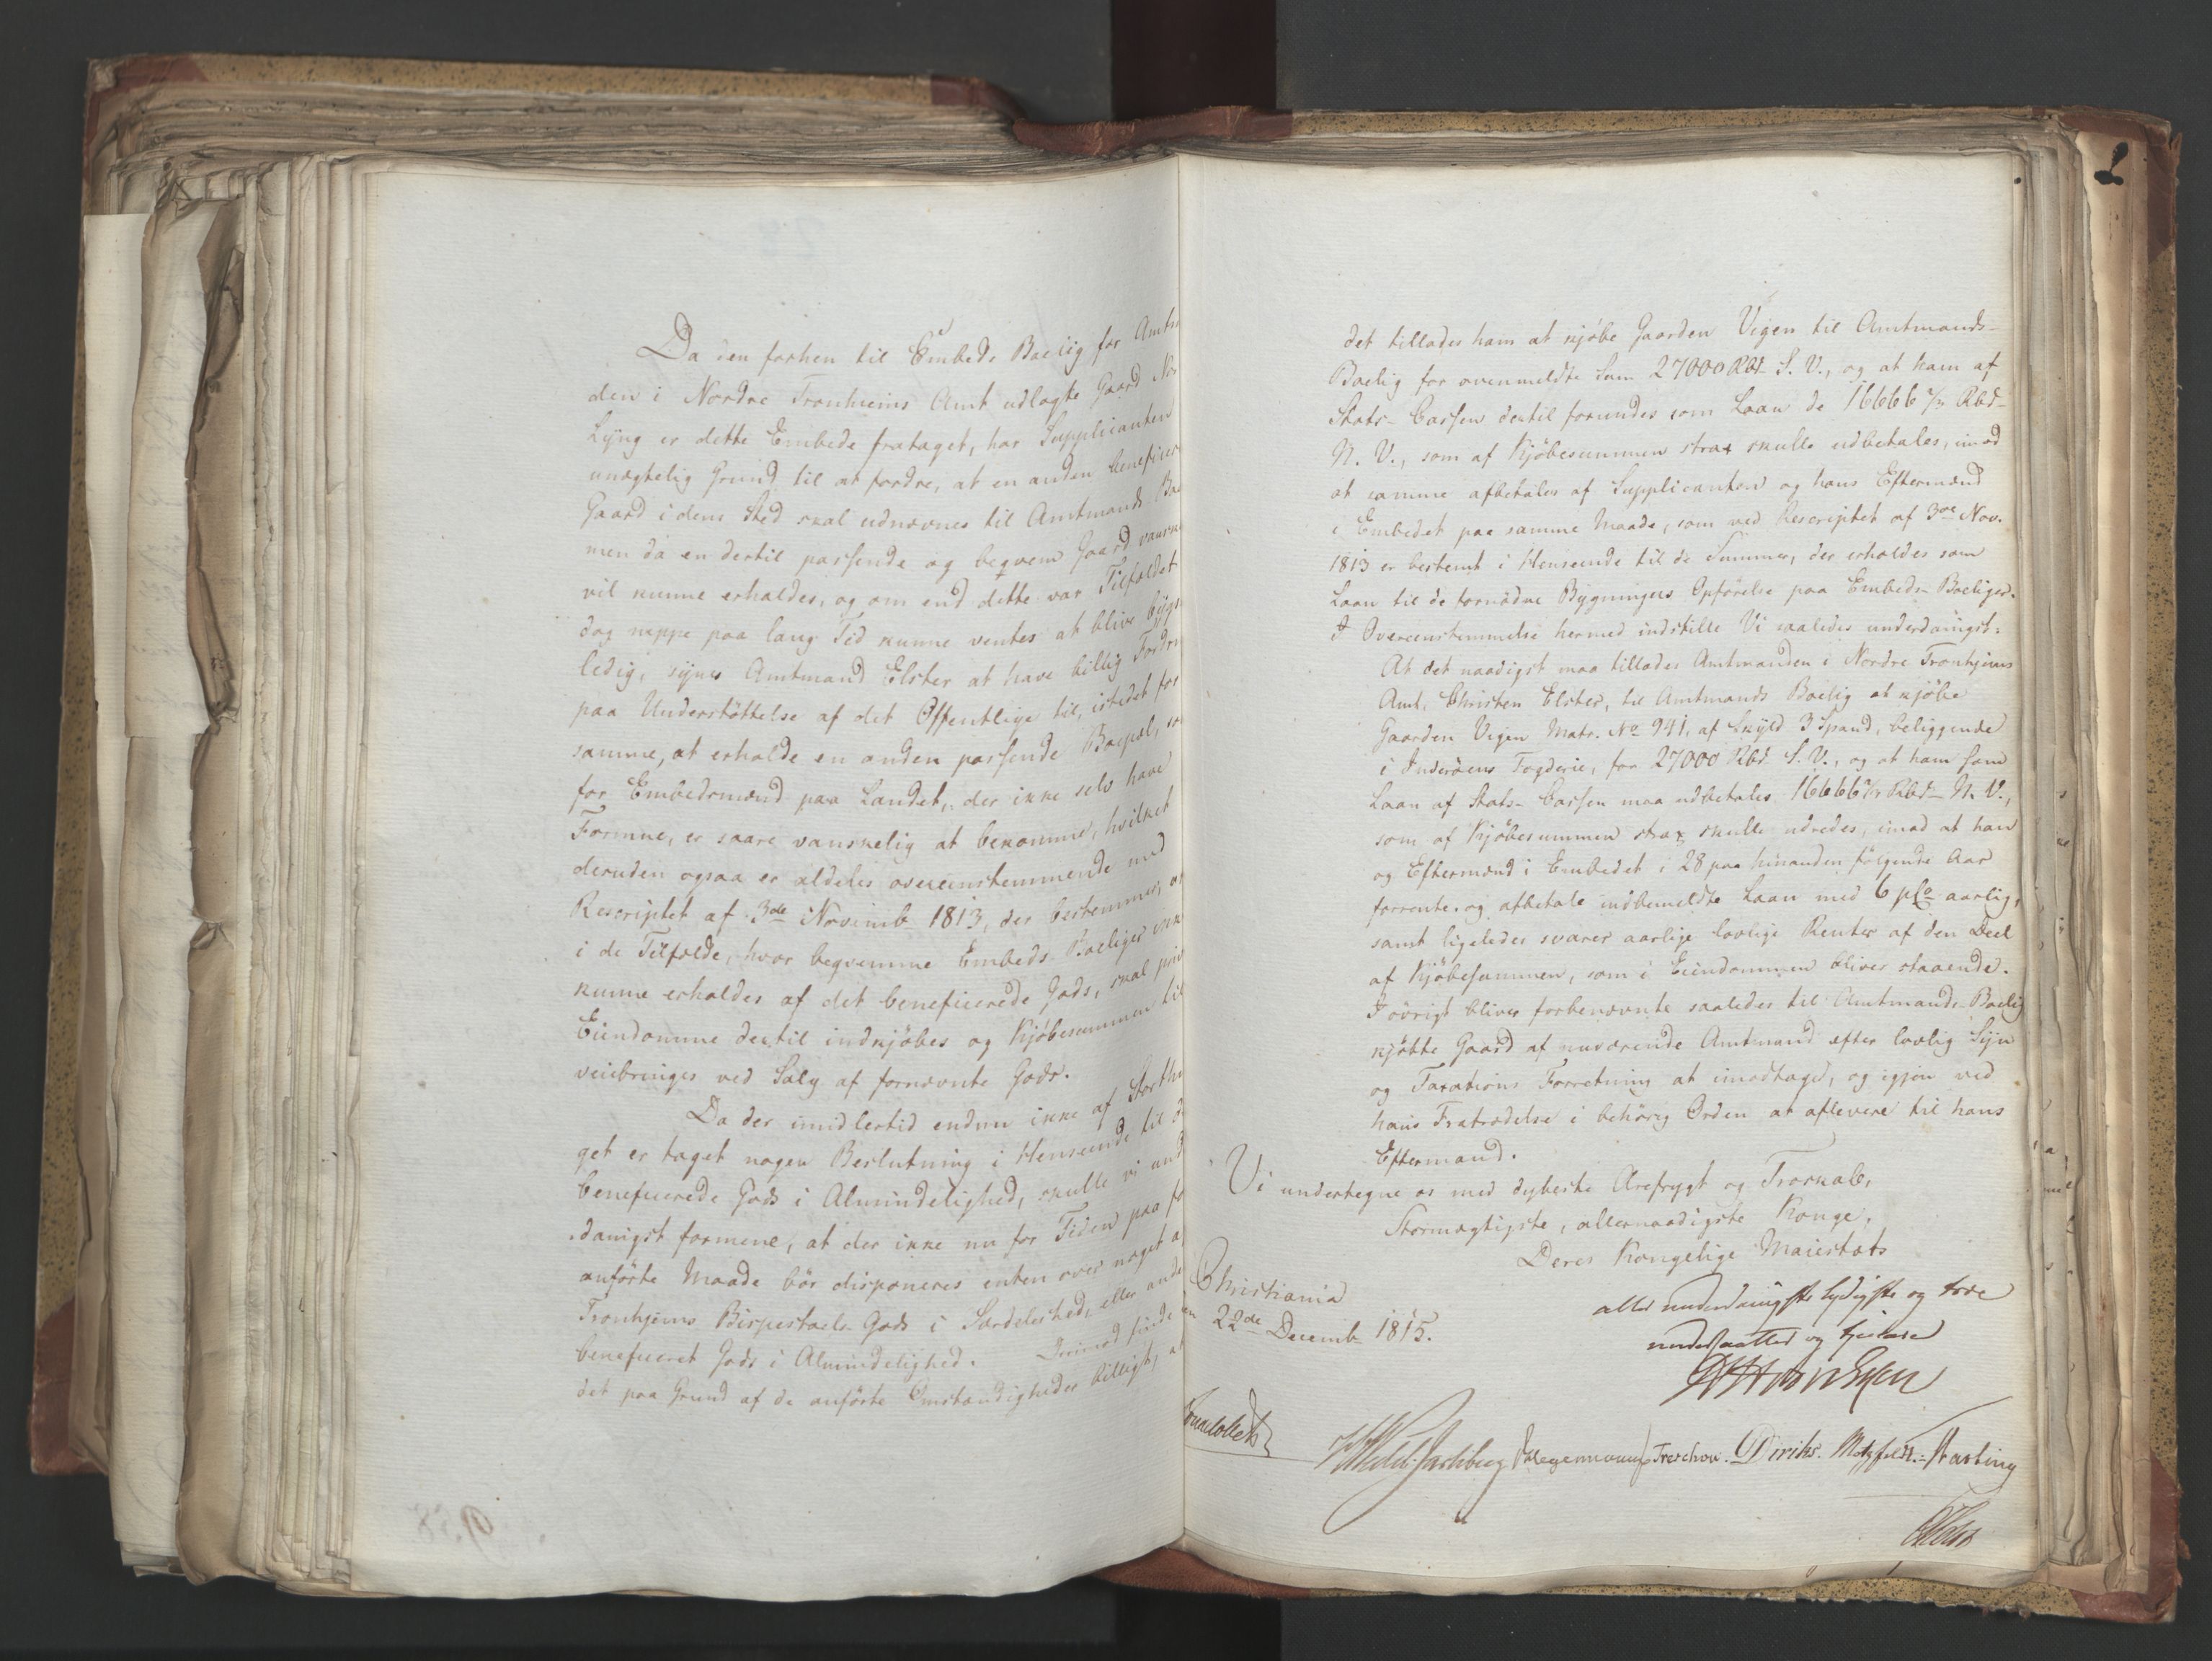 Da den forhen til Embeds Boelig for Amtm
den i Nordre Tronhiems Amt udlagte Gaard Nor
Lyng er dette Embede frataget, har Supplicanten
unægtelig Grund til at fordre, at en anden beneficer
Gaard i dens Sted skal udnævnes til Amtmands Boe
men da en dertil passende og beqvem Gaard vanske
vil kunne erholdes, og om end dette var Tilfældet
dog neppe paa lang Tid kunne ventes at blive bygs
ledig, synes Amtmand Elster at have billig Fordri
paa Understøttelse af det Offentlige til, istedet for
samme, at erholde en anden passende Boepæl, so
for Embedsmænd paa Landet, der ikke selv have
Formue, er saare vanskelig at bekomme, hvilket
desuden ogsaa er aldeles overeenstemmende med
Rescriptet af 3de Novemb. 1813, der bestemmer, at
i de Tilfælde, hvor beqvemme Embeds Boeliger ikke
kunne erholdes af det beneficerede Gods, skal priv
Eiendomme dertil indkjøbes og Kjøbesummen til
veiebringes ved Salg af fornævnte Gods.
Da der imidlertid endnu ikke af Storthi
get er taget nogen Beslutning i Henseende til d
beneficerede Gods i Almindelighed, skulle vi und
danigst formene, at der ikke nu for Tiden paa f
anførte Maade bør disponeres enten over noget a
Tronhjems Bispestoels Gods i Særdeleshed, eller ande
beneficeret Gods i Almindelighed. Derimod finde
det paa Grund af de anførte Omstændigheder billigt, at
det tillades ham at kjøbe Gaarden Vigen til Amtmands-
Boelig for ovenmeldte Sum 27000 Rbd. S. V., og at ham af
Stats-Cassen dertil forundes som Laan de 16666 2/3 Rbd.
N. V., som af Kjøbesummen strax skulle udbetales, imod
at samme afbetales af Supplicanten og hans Eftermænd
i Embedet paa samme Maade, som ved Rescriptet af 3de Nov.
1813 er bestemt i Henseende til de Summer, der erholdes som
Laan til de fornødne Bygningers Opførelse paa Embeds-Boeliger.
I Overeenstemmelse hermed indstille Vi saaledes underdanigst:
At det naadigst maa tillades Amtmanden i Nordre Tronhjems
Amt, Christen Elster, til Amtmands Boelig at kjøbe
Gaarden Vigen Matr. No 941, af Skyld 3 Spand, beliggende
i Inderøens Fogderie, for 27000 Rbd. S. V., og at ham som
Laan af Stats-Cassen maa udbetales 16666 2/3 Rbd. N. V.,
som af Kjøbesummen strax skulle udredes, imod at han
og Eftermænd i Embedet i 28 paa hinanden følgende Aar
forrente og afbetale indbemeldte Laan med 6 pCo aarlig,
samt ligeledes svarer aarlige lovlige Renter af den Deel
af Kjøbesummen, som i Eiendommen bliver staaende.
I øvrigt bliver forbenævnte saaledes til Amtmands-Boelig
kjøbte Gaard af nuværende Amtmand efter lovlig Syn
og Taxations Forretning at imodtage, og igjen ved
hans Fratrædelse i behørig Orden at aflevere til hans
Eftermand.
Vi undertegne os med dybeste Ærefrygt og Troskab,
Stormægtigste, allernaadigste Konge,
Deres Kongelige Maiestæts
Christiania
22de Decemb. 1815.
aller underdanigste lydigste og troe
undersaatter og tjenere
Wedel Jarlsberg Hegermann Treschow. Diriks. Motzfeldt. Fasting